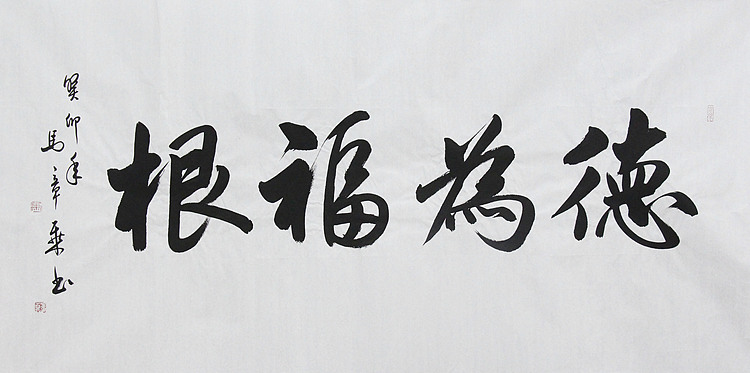 德為福根
癸卯年
馬章乘书